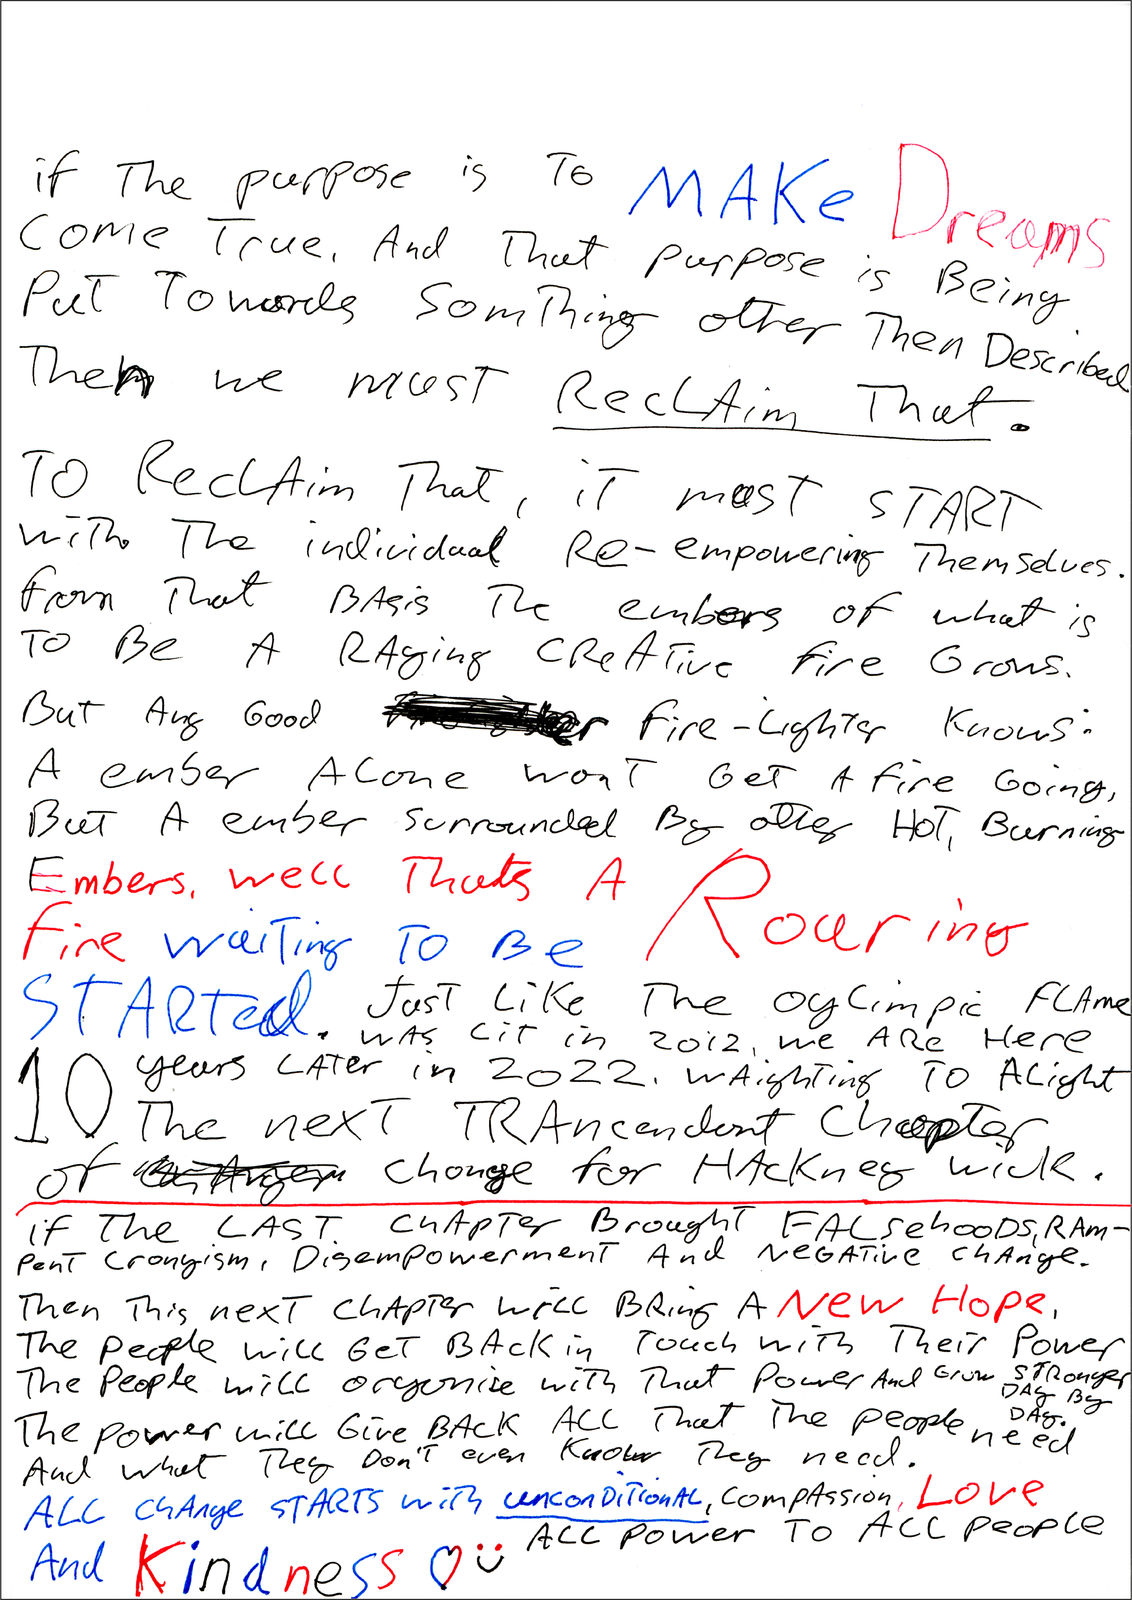 if The purpose is To MAKe Dreams
Come True, And That purpose is Being
Put Towards SomThing other Then Described
Then we must ReclAim That.
To ReclAim That, iT must START
with The individual Re-empowering Themselves.
from That BAsis The embers of what is
To Be A RAging CReATive fire Grows.
But Any Good fire-Lighter Knows:
A ember ALone wonT GeT A fire Going,
But A ember surrounded By other HoT, Burning
Embers, well Thats A Roaring
fire waiTing To Be
STARTed. JusT Like The oylimpic FLAme
was LiT in 2012, we ARe Here
10 years LATer in 2022. wAighTing To ALight
The nexT TRAncendent ChapTer
of change for HAckney wick.
if The LAST chApTer BroughT FALsehooDs, RAm-
penT cronyism, DisempowermenT And NeGATive change.
Then This nexT chApTer will BRing A New Hope,
The people will GeT BAck in Touch with Their Power
The People will organise with ThaT Power And Grow STRonger
DAy By
DAy.
The power will Give BAck ALL That The people need
And whaT They Don'T even Know They need.
ALL chAnge sTARTs with unconDiTionAL, compAssion, Love
And Kindness ♡ :)
ALL power To ALL people